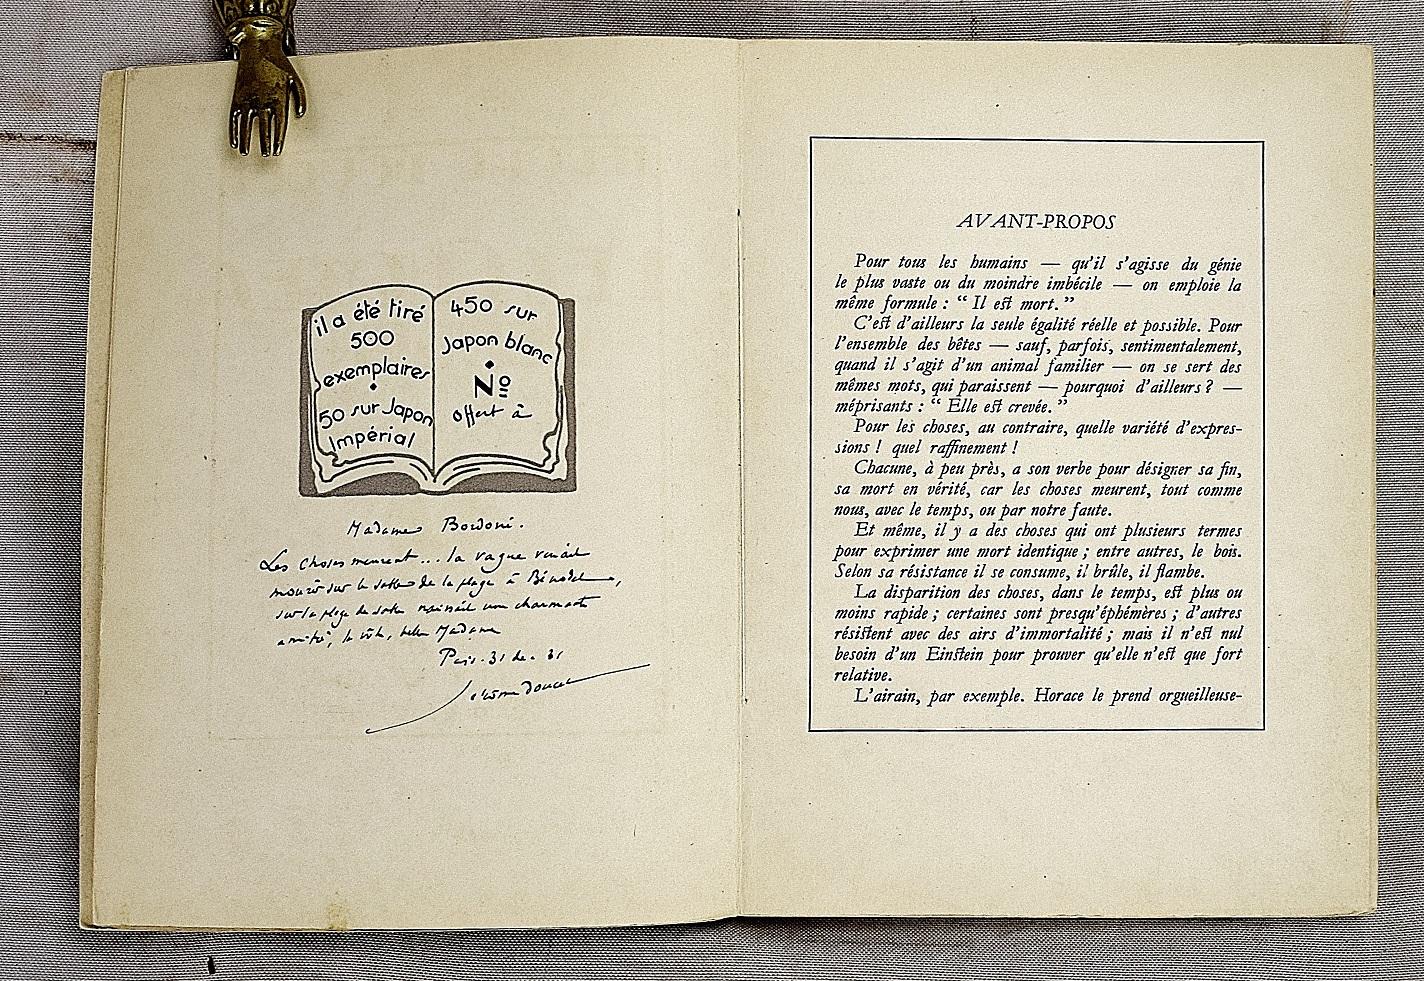 il a été tiré
500
exemplaires
50 sur Japon
Impérial
450 sur
Japon blanc
Nº
offert à
Madame Bordoni.
Les choses meurent... la vague venait
mourir sur le sable de la plage à Bénodet,
sur la plage de sable naissait une charmante
amitié, la vôtre, belle Madame
Paris. 31 31
Jérôme Doucet
AVANT-PROPOS
Pour tous les humains — qu'il s'agisse du génie
le plus vaste ou du moindre imbécile — on emploie la
même formule : “ Il est mort. ”
C'est d'ailleurs la seule égalité réelle et possible. Pour
l'ensemble des bêtes — sauf, parfois, sentimentalement,
quand il s'agit d'un animal familier — on se sert des
mêmes mots, qui paraissent — pourquoi d'ailleurs ? —
méprisants : “ Elle est crevée. ”
Pour les choses, au contraire, quelle variété d'expres-
sions ! quel raffinement !
Chacune, à peu près, a son verbe pour désigner sa fin,
sa mort en vérité, car les choses meurent, tout comme
nous, avec le temps, ou par notre faute.
Et même, il y a des choses qui ont plusieurs termes
pour exprimer une mort identique ; entre autres, le bois.
Selon sa résistance il se consume, il brûle, il flambe.
La disparition des choses, dans le temps, est plus ou
moins rapide ; certaines sont presqu'éphémères ; d'autres
résistent avec des airs d'immortalité ; mais il n'est nul
besoin d'un Einstein pour prouver qu'elle n'est que fort
relative.
L'airain, par exemple. Horace le prend orgueilleuse-